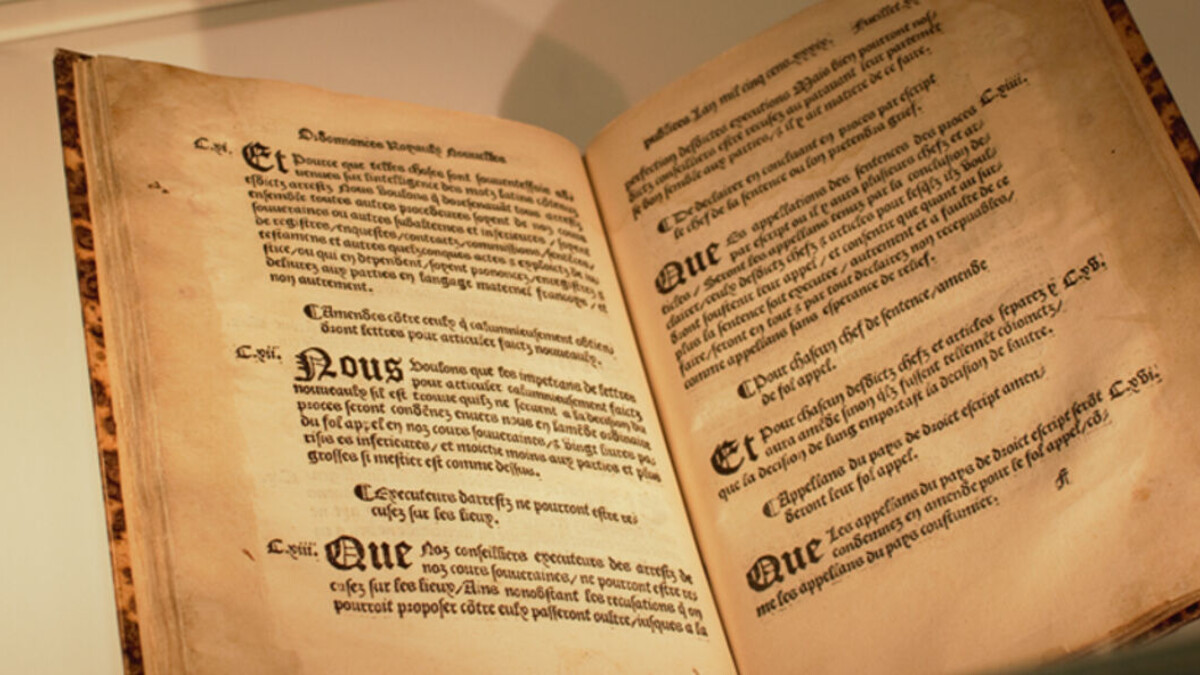 Ordonnances Royaulx Nouuelles
C.xi. Et Pource que telles choses sont souuenteffois adue
nues sur lintelligence des motz latins cõtenuz
esdictz arrestz. Nous voulons q̃ doresenauãt tous arrestz
ensemble toutes autres procedeures soyent de noz cours
souueraines ou autres subalternes et inferieures / soyent
de registres / enquestes / contractz / commissions / sentẽces /
testamens et autres quelzconques actes & exploictz de ius
stice / ou qui en dependent / soyent prononcez / enregistrez &
deliurez aux parties en langage maternel francoys / et
non autrement.
¶Amendes cõtre ceulx q̃ calumnieusement obtien
dront lettres pour articuler faictz nouueaulx.
C.xii. Nous voulons que les impetrans de lettres
pour articuler calumnieusement faictz
nouueaulx sil est trouue quilz ne seruent a la decision du
proces seront condẽnez enuers nous en lamẽde ordinaire
du fol appel en noz cours souueraines / & vingt liures pa
risis es inferieures / et moictie moins aux parties et plus
grosses si mestier est comme dessus.
¶Executeurs darrestz ne pourront estre re⸗
cusez sur les lieux.
C.xiii. Que Noz conseilliers executeurs des arrestz de
noz cours souueraines / ne pourront estre re⸗
cusez sur les lieux / Ains nonobstant les recusations q̃ on
pourroit proposer cõtre eulx passeront oultre / iusques a la
publiees Lan mil cinq cens .xxxix. Fueillet
perfection desdictes executions Mais bien pourront nos⸗
dictz conseilliers estre recusez au parauant leur partemẽt
se bon semble aux parties / & il y ait matiere de ce faire.
¶De declairer en concluant en proces par escript
le chef de la sentence ou lon pretendra grief.
Que Es appellations des sentences des proces C.xiiii.
par escript ou il y aura plusieurs chefz et ar⸗
ticles / Seront les appellans tenus par la conclusion de⸗
clairer / ceulx desdictz chefz & articles pour lesqlz ilz voul⸗
dront soustenir leur appel / et consentir que quant au sur⸗
plus la sentence soit executee / autrement et a faulte de ce
faire / seront en tout & par tout declairez non receuables /
comme appellans sans esperance de relief.
¶Pour chascun chef de sentence / amende
de fol appel.
Et Pour chascun desdictz chefz et articles separez y C.xv.
aura amẽde sinon q̃lz fussent tellemẽt cõioinctz /
que la decision de lung emportast la decision de lautre.
¶Appellans du pays de droict escript amen⸗
deront leur fol appel.
Que Les appellans du pays de droict escript serõt C.xvi.
condemnez en amende pour le fol appel / cõ⸗
me les appellans du pays coustumier.